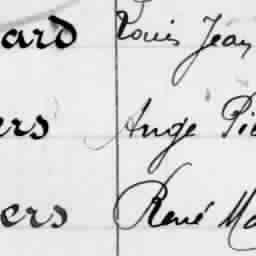 ard Louis Jean
ers Ange Pie
ers René Ma